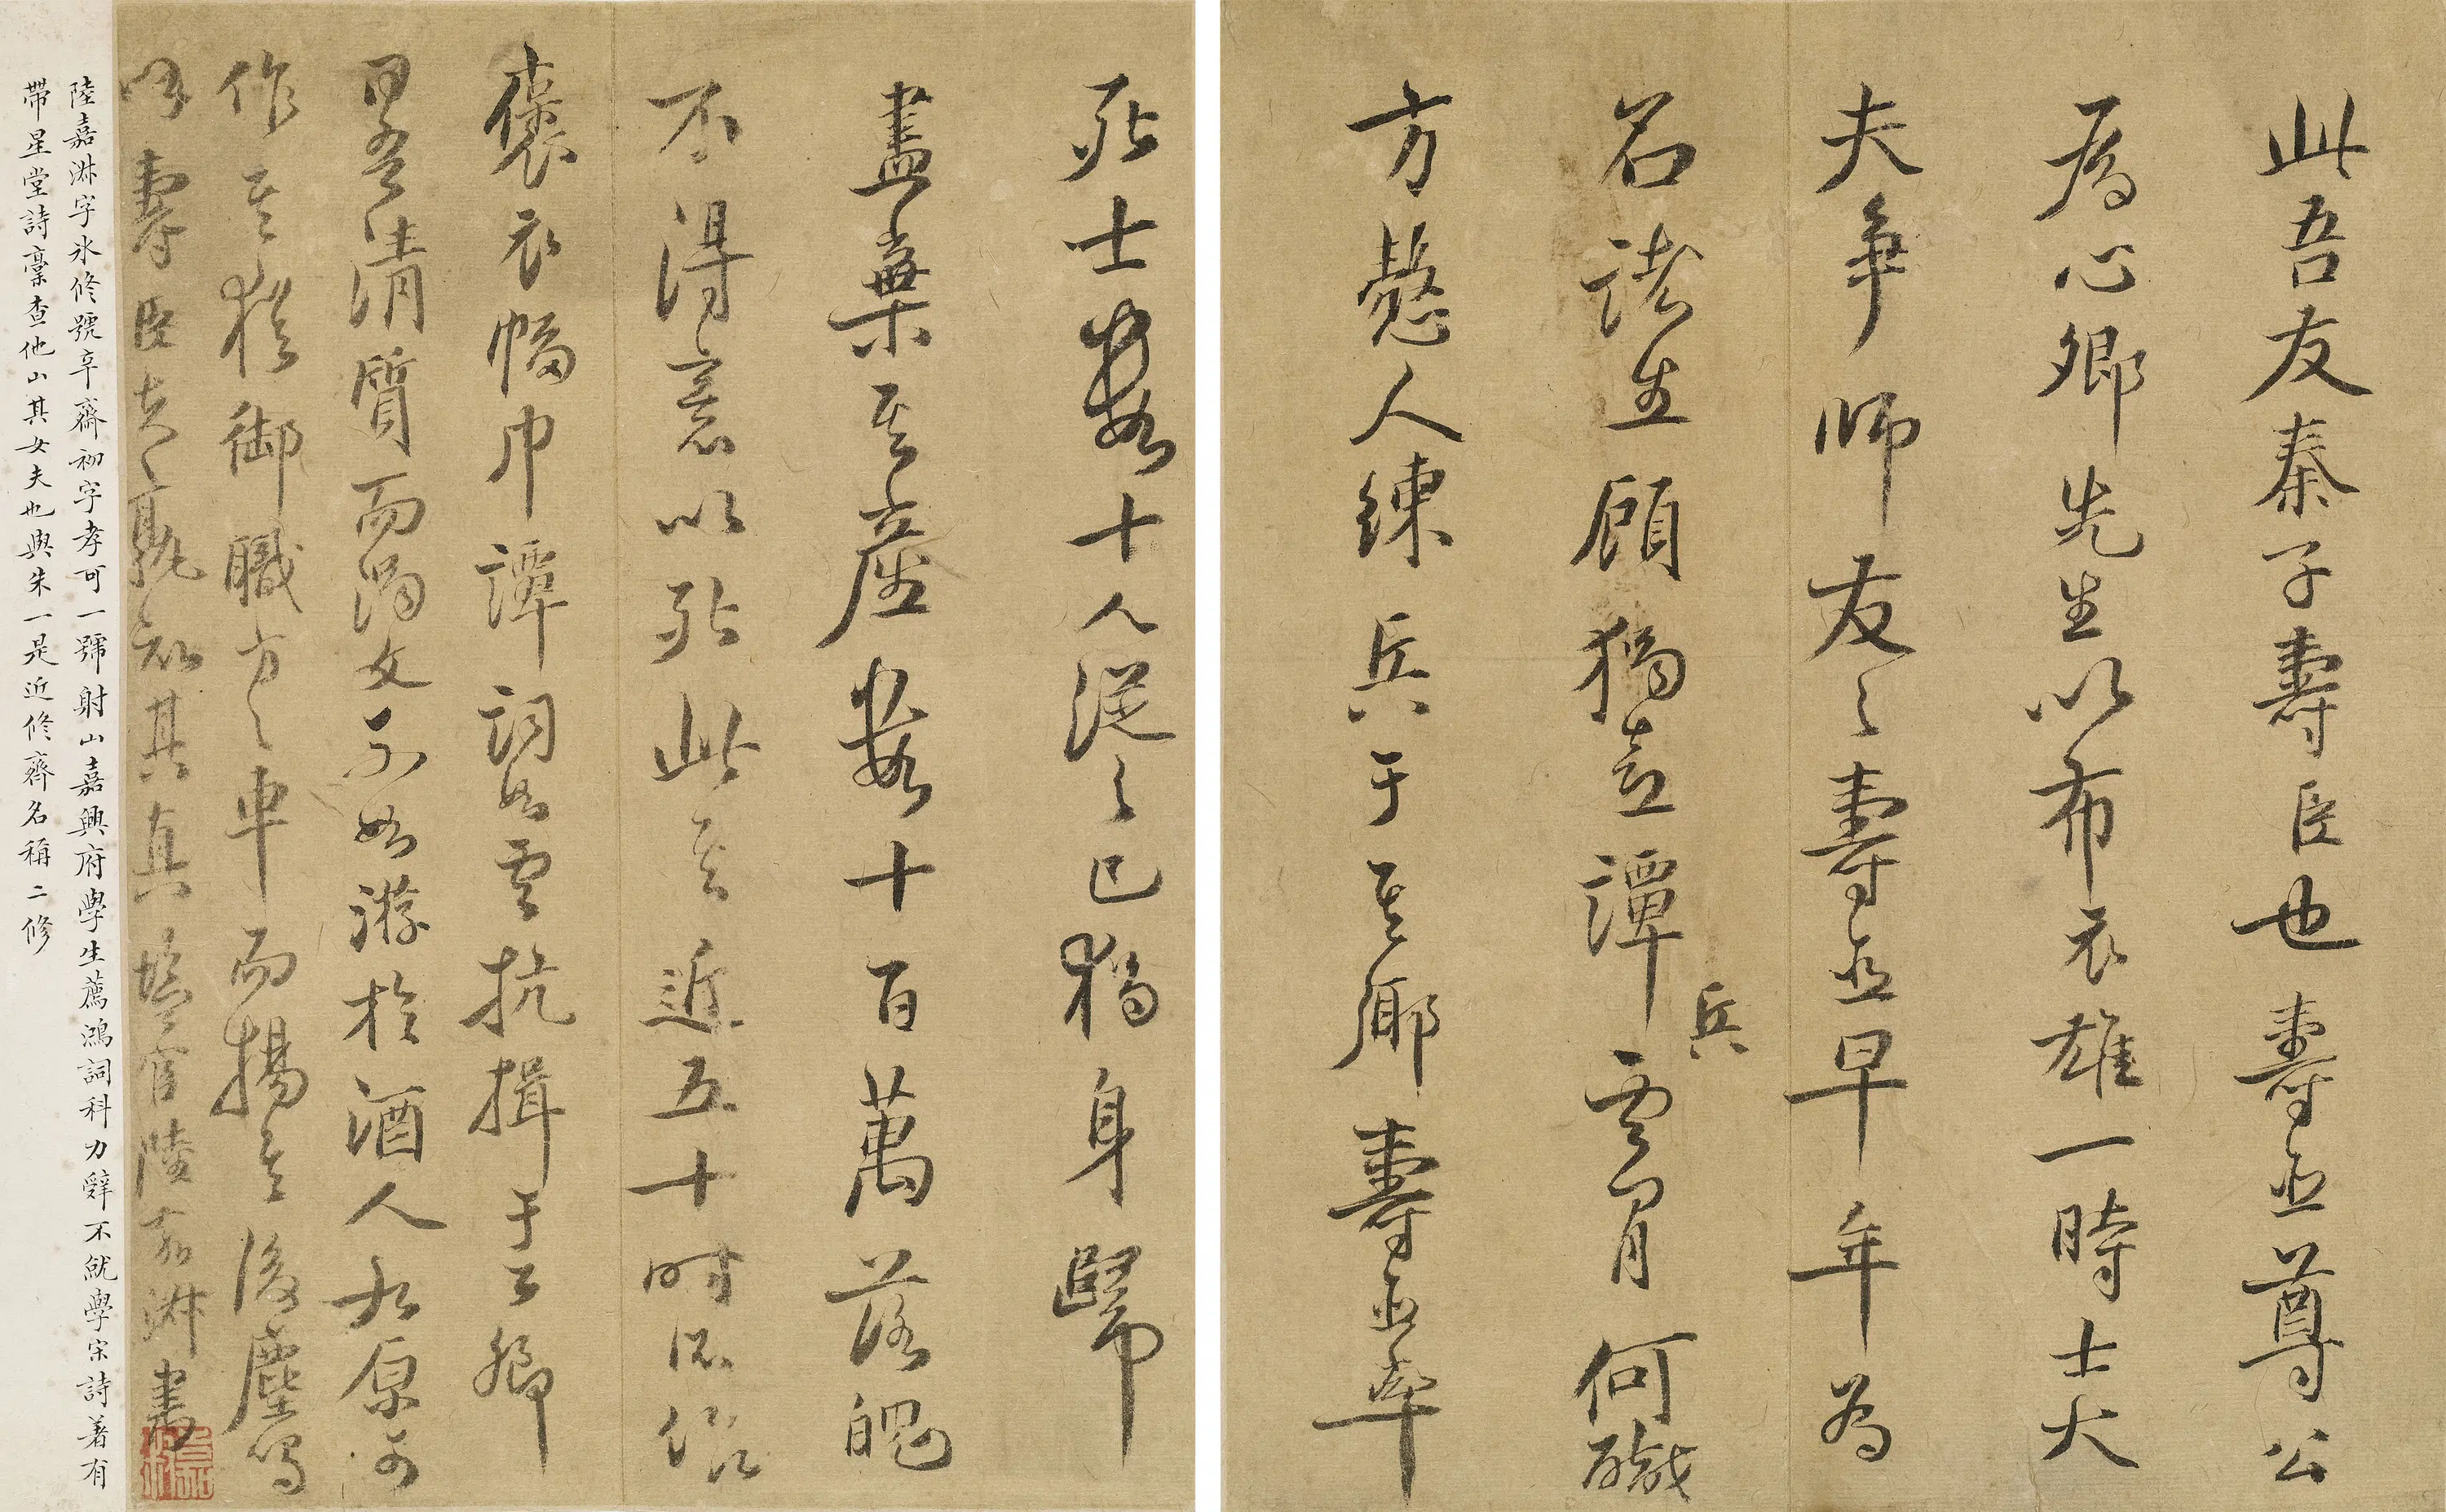 此吾友秦子壽臣也壽臣尊公
為心卿先生以布衣雄一時士大
夫爭師友之壽臣早年為
名諸生顧獨喜譚兵雲間何職
方慤人練兵于其鄉壽臣率
死士數十人從之已獨身歸
盡棄其產數十百萬落魄
不得意以死此其近五十時所作
褒衣幅巾譚詞如雲抗揖于公卿
思吾清質而濁文不如游於酒人太原
作其猴御職方之車而揚其後塵嗚
呼壽臣去孰知其真鹽官陸嘉淑書
陸嘉淑字氷修號辛齋初字孝可一號射山嘉興府學生薦鴻詞科力辭不就學宋詩著有
帶星堂詩稾查他山其女夫也與朱一是近修齊名稱二修